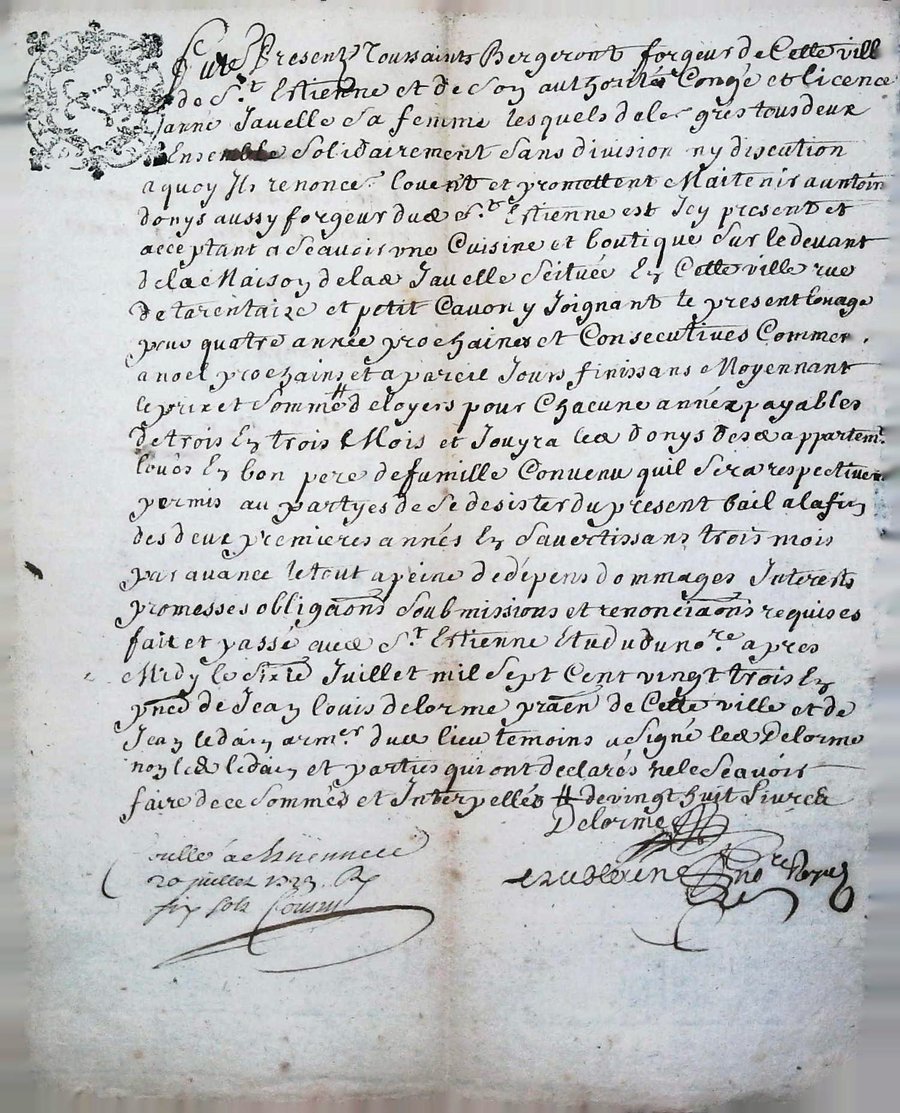 Furent Presents Toussaints Bergeront forgeur de Cette ville
de St Estienne et de Son authorité Congé et licence
Janne Javelle Sa femme lesquels de leur gres tous deux
Ensemble Solidairement Sans division ny discution
a quoy Ils renonce. louent et promettent Maitenir a antoin
donys aussy forgeur dud St Estienne est Icy present et
acceptant a Scavoir une Cuisine et boutique Sur le devant
de la Maison de lad Javelle Scituée En Cette ville rue
de tarentaize et petit Cavon y Joignant le present louage
pour quatre année prochaines et Consecutives Commen.
a noel prochains et a pareil Jours finissans Moyennant
le prix et Somme # de loyers pour Chacune année payables
de trois En trois Mois et Jouyra led donys desd appartemt
loués En bon pere de famille Convenu quil Sera respectivemt
permis au partyes de Se desister du present bail a la fin
des deux premieres annés En Savertissans trois mois
par avance le tout a peine de dépens dommages Interests
promesses obligaons Soubmissions et renonciaons requises
fait et passé aud St Estienne Etude du nore apres
Midy le Sixie Juillet mil Sept Cent vingt trois En
pnce de Jean louis delorme praen de Cette ville et de
Jean ledain armer dud lieu temoins a Signé led Delorme
non led ledain et parties qui ont declarés ne le Scavoir
faire de ce Sommés et Interpellés # de vingt huit Livres
Delorme
20 juillet 1723
six sols
nore Royal